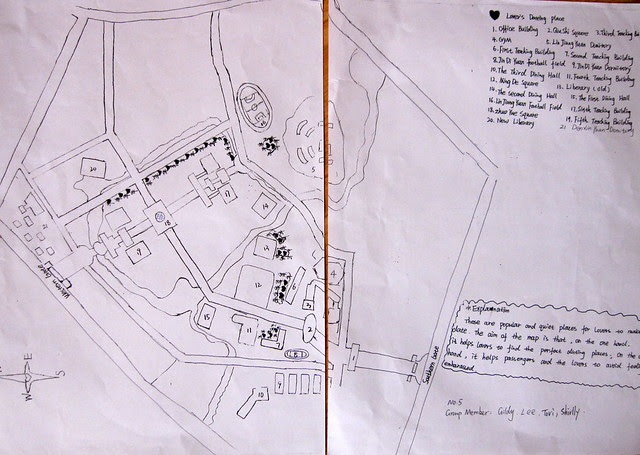 Lovers Dating place
1. Office Building 2. Qiushi Square 3. Third Teaching Bui
4. GYM 5. Liu Jiang Yuan Dormitory
6. First Teaching Building 7. Second Teaching Building
8. Jin Di Yuan football field 9. JinDi Yuan Dormitory
10. The Third Dining Hall 11. Fourth Teaching Building
12. Ming De Square 13. Liberary (old)
14. The Second Dining Hall 15. The First Dining Hall
16. Liu Jiang Yuan Football Field 17. Sixth Teaching Building
18. Square 19. Fifth Teaching Building
20. New Liberary 21. Dormitory
Explanation
These are popular and quiet places for lovers to make
place. the aim of the map is that, on the one hand,
it helps lovers to find the perfect dating places, on the
hand, it helps passengers and the lovers to avoid feeling
embarrassed
No.5
Group Member: Giddy, Lee, Tori, Shirlly
Southern Gate
Western Gate
20
18
17
14
9
13
12
6
4
5
15
11
7
2
10
E
S
W